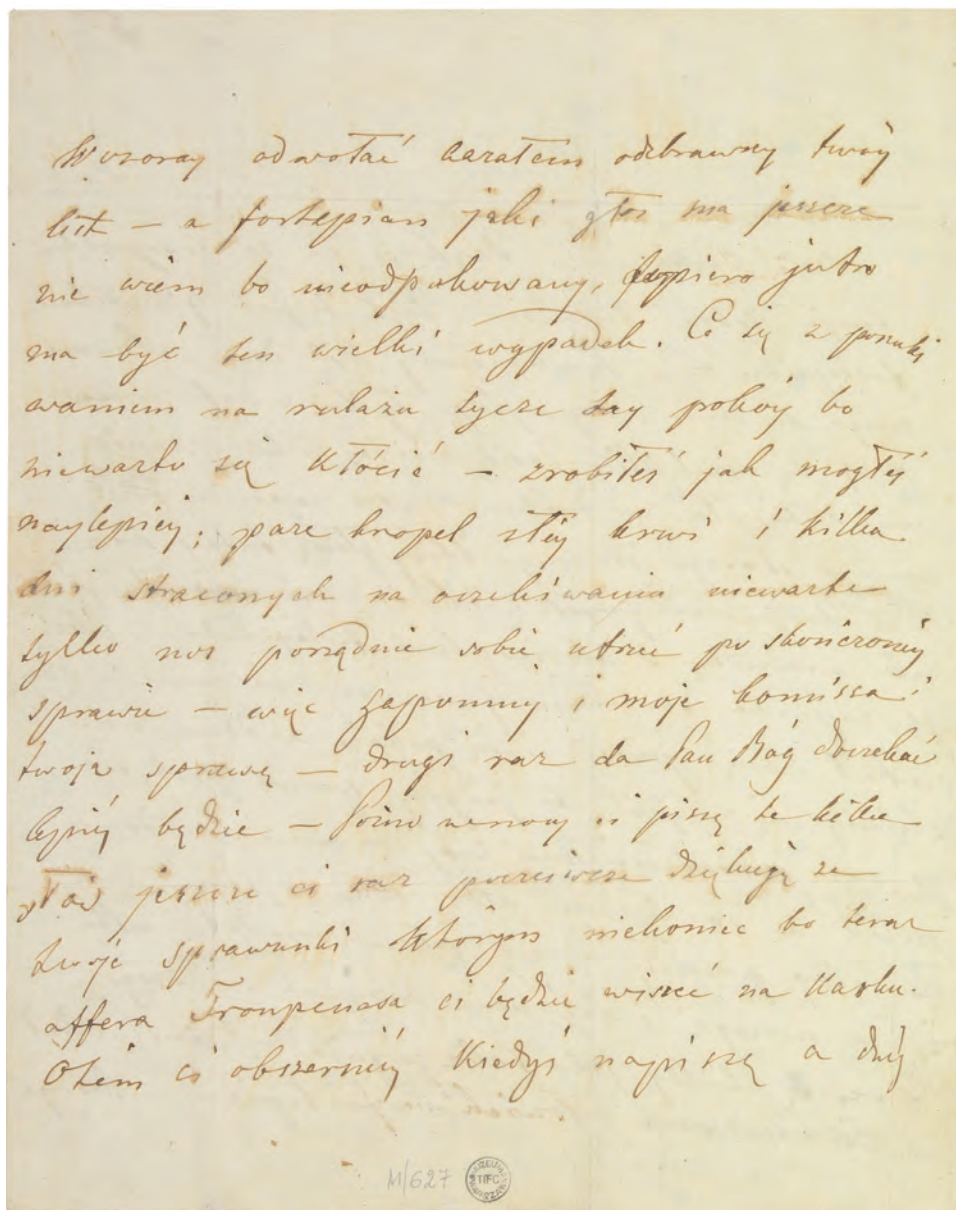 Wczoray odwołać kazałem odebrawszy twóy
list — a fortepian jaki głos ma jeszcze
nie wiem bo nieodpakowany, dopiero jutro
ma być ten wielki wypadek. Co się z poszuki
waniem na rulażu tycze day pokóy bo
niewarto się kłócić — zrobiłeś jak mogłeś
naylepiey; parę kropel złey krwi i kilka
dni straconych na oczekiwaniu niewarte
tylko nos porządnie sobie utrzeć po skończoney
sprawie — więc zapomniy i moje komissa i
twoja sprawę — drugi raz da Pan Bóg doczekać
lepiéy będzie — Późno w nocy ci piszę te kilka
słów jeszcze ci raz poczciwcze dziękuję za
twoje sprawunki którym niekoniec bo teraz
affera Troupenasa ci będzie wisieć na Karku.
Otem ci obszerniey Kiedyś napiszę a dziś
M/627
TIFC